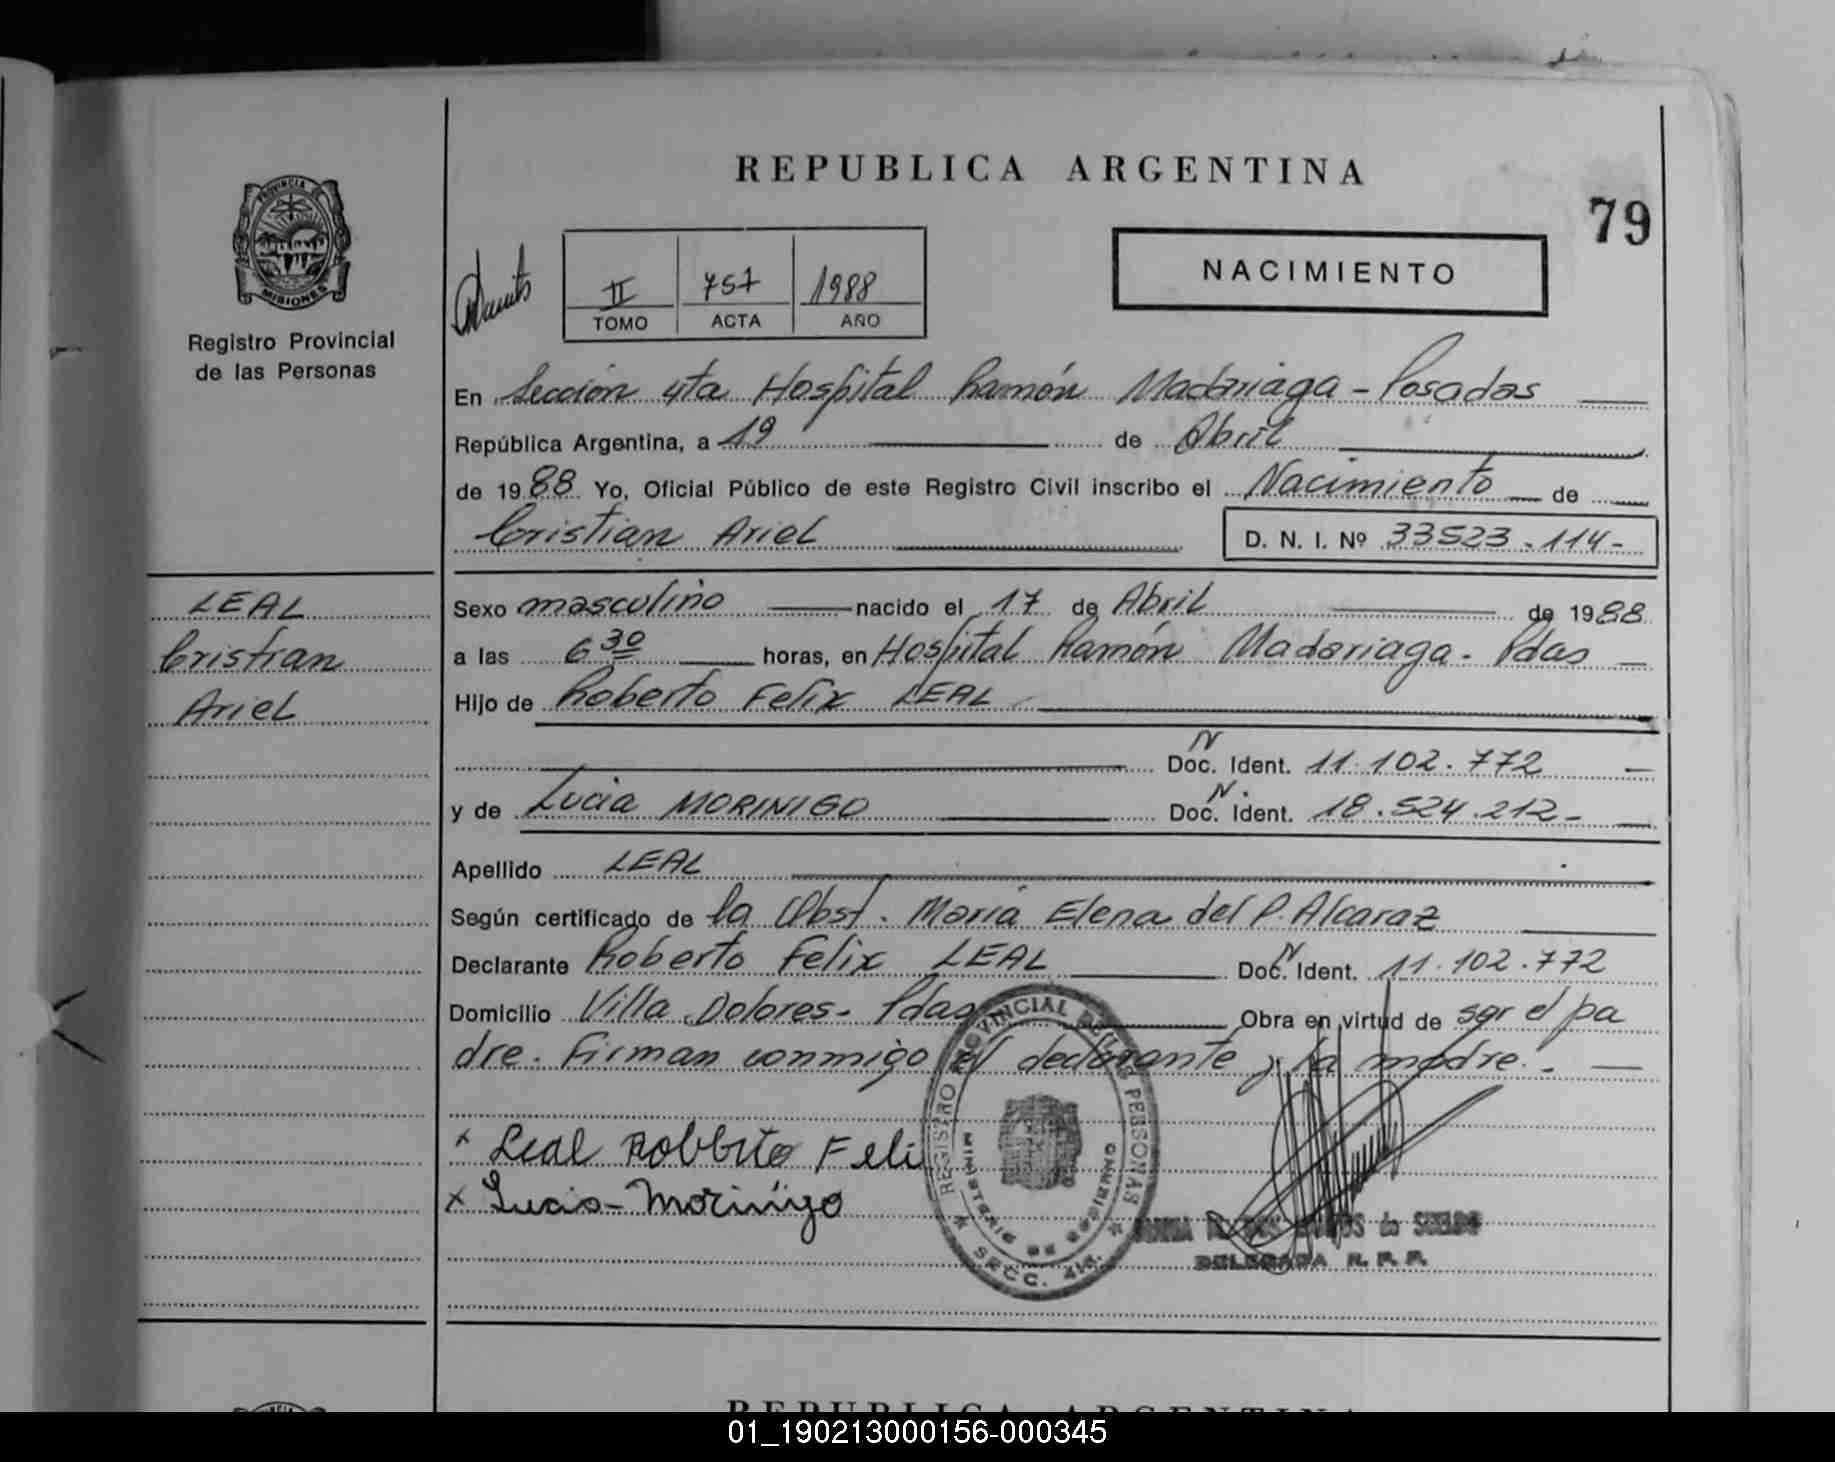 REPUBLICA ARGENTINA
79
PROVINCIA DE
MISIONES
Registro Provincial
de las Personas
II 757 1988
TOMO ACTA AÑO
NACIMIENTO
En Sección 4ta Hospital Ramón Madariaga - Posadas
República Argentina, a 19 de Abril
de 1988 Yo, Oficial Público de este Registro Civil inscribo el Nacimiento de
Cristian Ariel D. N. I. Nº 33523.114-
LEAL
Cristian
Ariel
Sexo masculino nacido el 17 de Abril de 1988
a las 6 30 horas, en Hospital Ramón Madariaga - Pdas
Hijo de Roberto Felix LEAL
N
Doc. Ident. 11.102.772
N.
y de Lucia MORINIGO Doc. Ident. 18.524.212-
Apellido LEAL
Según certificado de la Obst. Maria Elena del P. Alcaraz
N
Declarante Roberto Felix LEAL Doc. Ident. 11.102.772
Domicilio Villa Dolores - Pdas Obra en virtud de ser el pa
dre. Firman conmigo el declarante y la madre.-
x Leal Robbrto Feli
x Lucia - Moriñigo
REGISTRO PROVINCIAL DE LAS PERSONAS
MINISTERIO DE GOBIERNO
SECC. 4ta.
de SUELDO
DELEGADA R. P. P.
REPUBLICA ARGENTINA
01_190213000156-000345